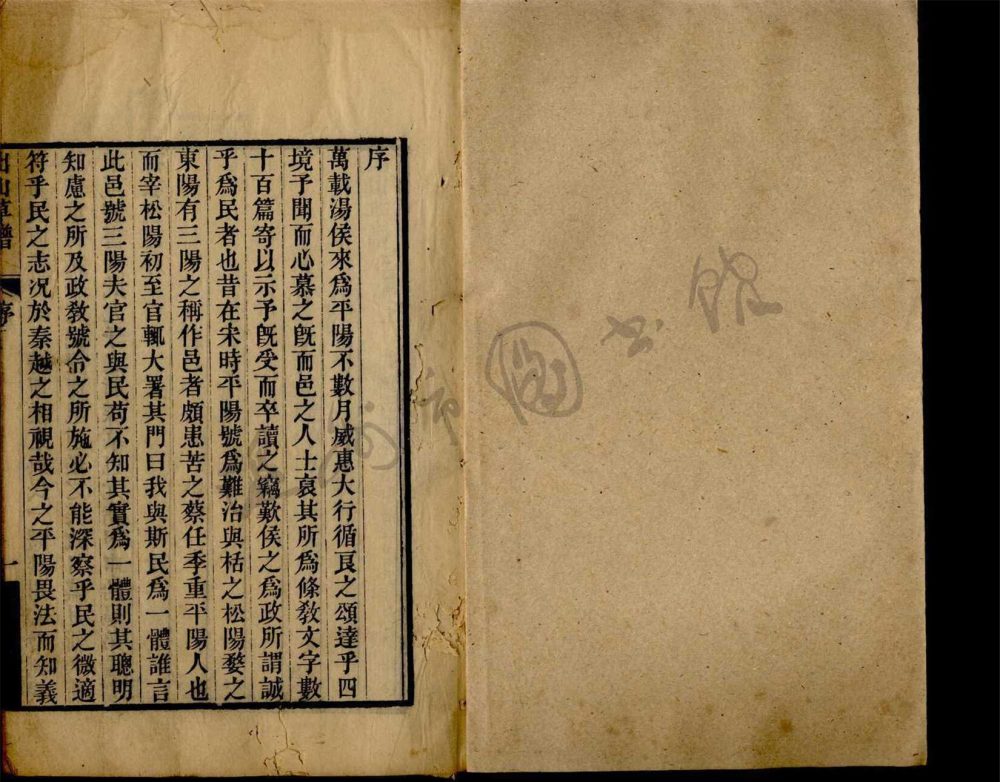 序
萬載湯侯來爲平陽不數月威惠大行循良之頌達乎四
境予聞而心慕之旣而邑之人士裒其所爲條敎文字數
十百篇寄以示予旣受而卒讀之竊歎侯之爲政所謂誠
乎爲民者也昔在宋時平陽號爲難治與栝之松陽婺之
東陽有三陽之稱作邑者頗患苦之蔡任季重平陽人也
而宰松陽初至官輒大署其門曰我與斯民爲一體誰言
此邑號三陽夫官之與民苟不知其實爲一體則其聰明
知慮之所及政敎號令之所施必不能深察乎民之微適
符乎民之志況於秦越之相視哉今之平陽畏法而知義
出山草譜
序
一
市圖书館